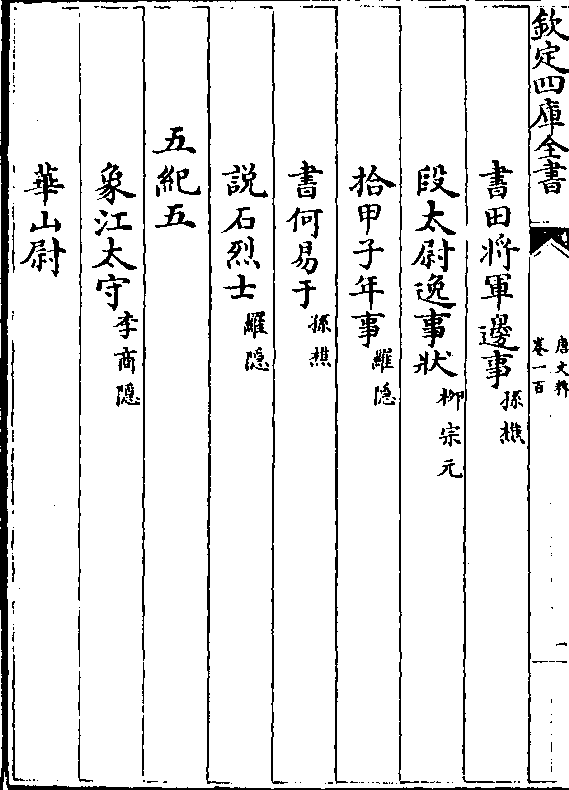 欽定四庫全書
唐文粹
卷一百
一
書田將軍邊事 孫樵
段太尉逸事狀 柳宗元
拾甲子年事 羅隠
書何易于 孫樵
説石烈士 羅隠
五紀五
象江太守 李商隠
華山尉